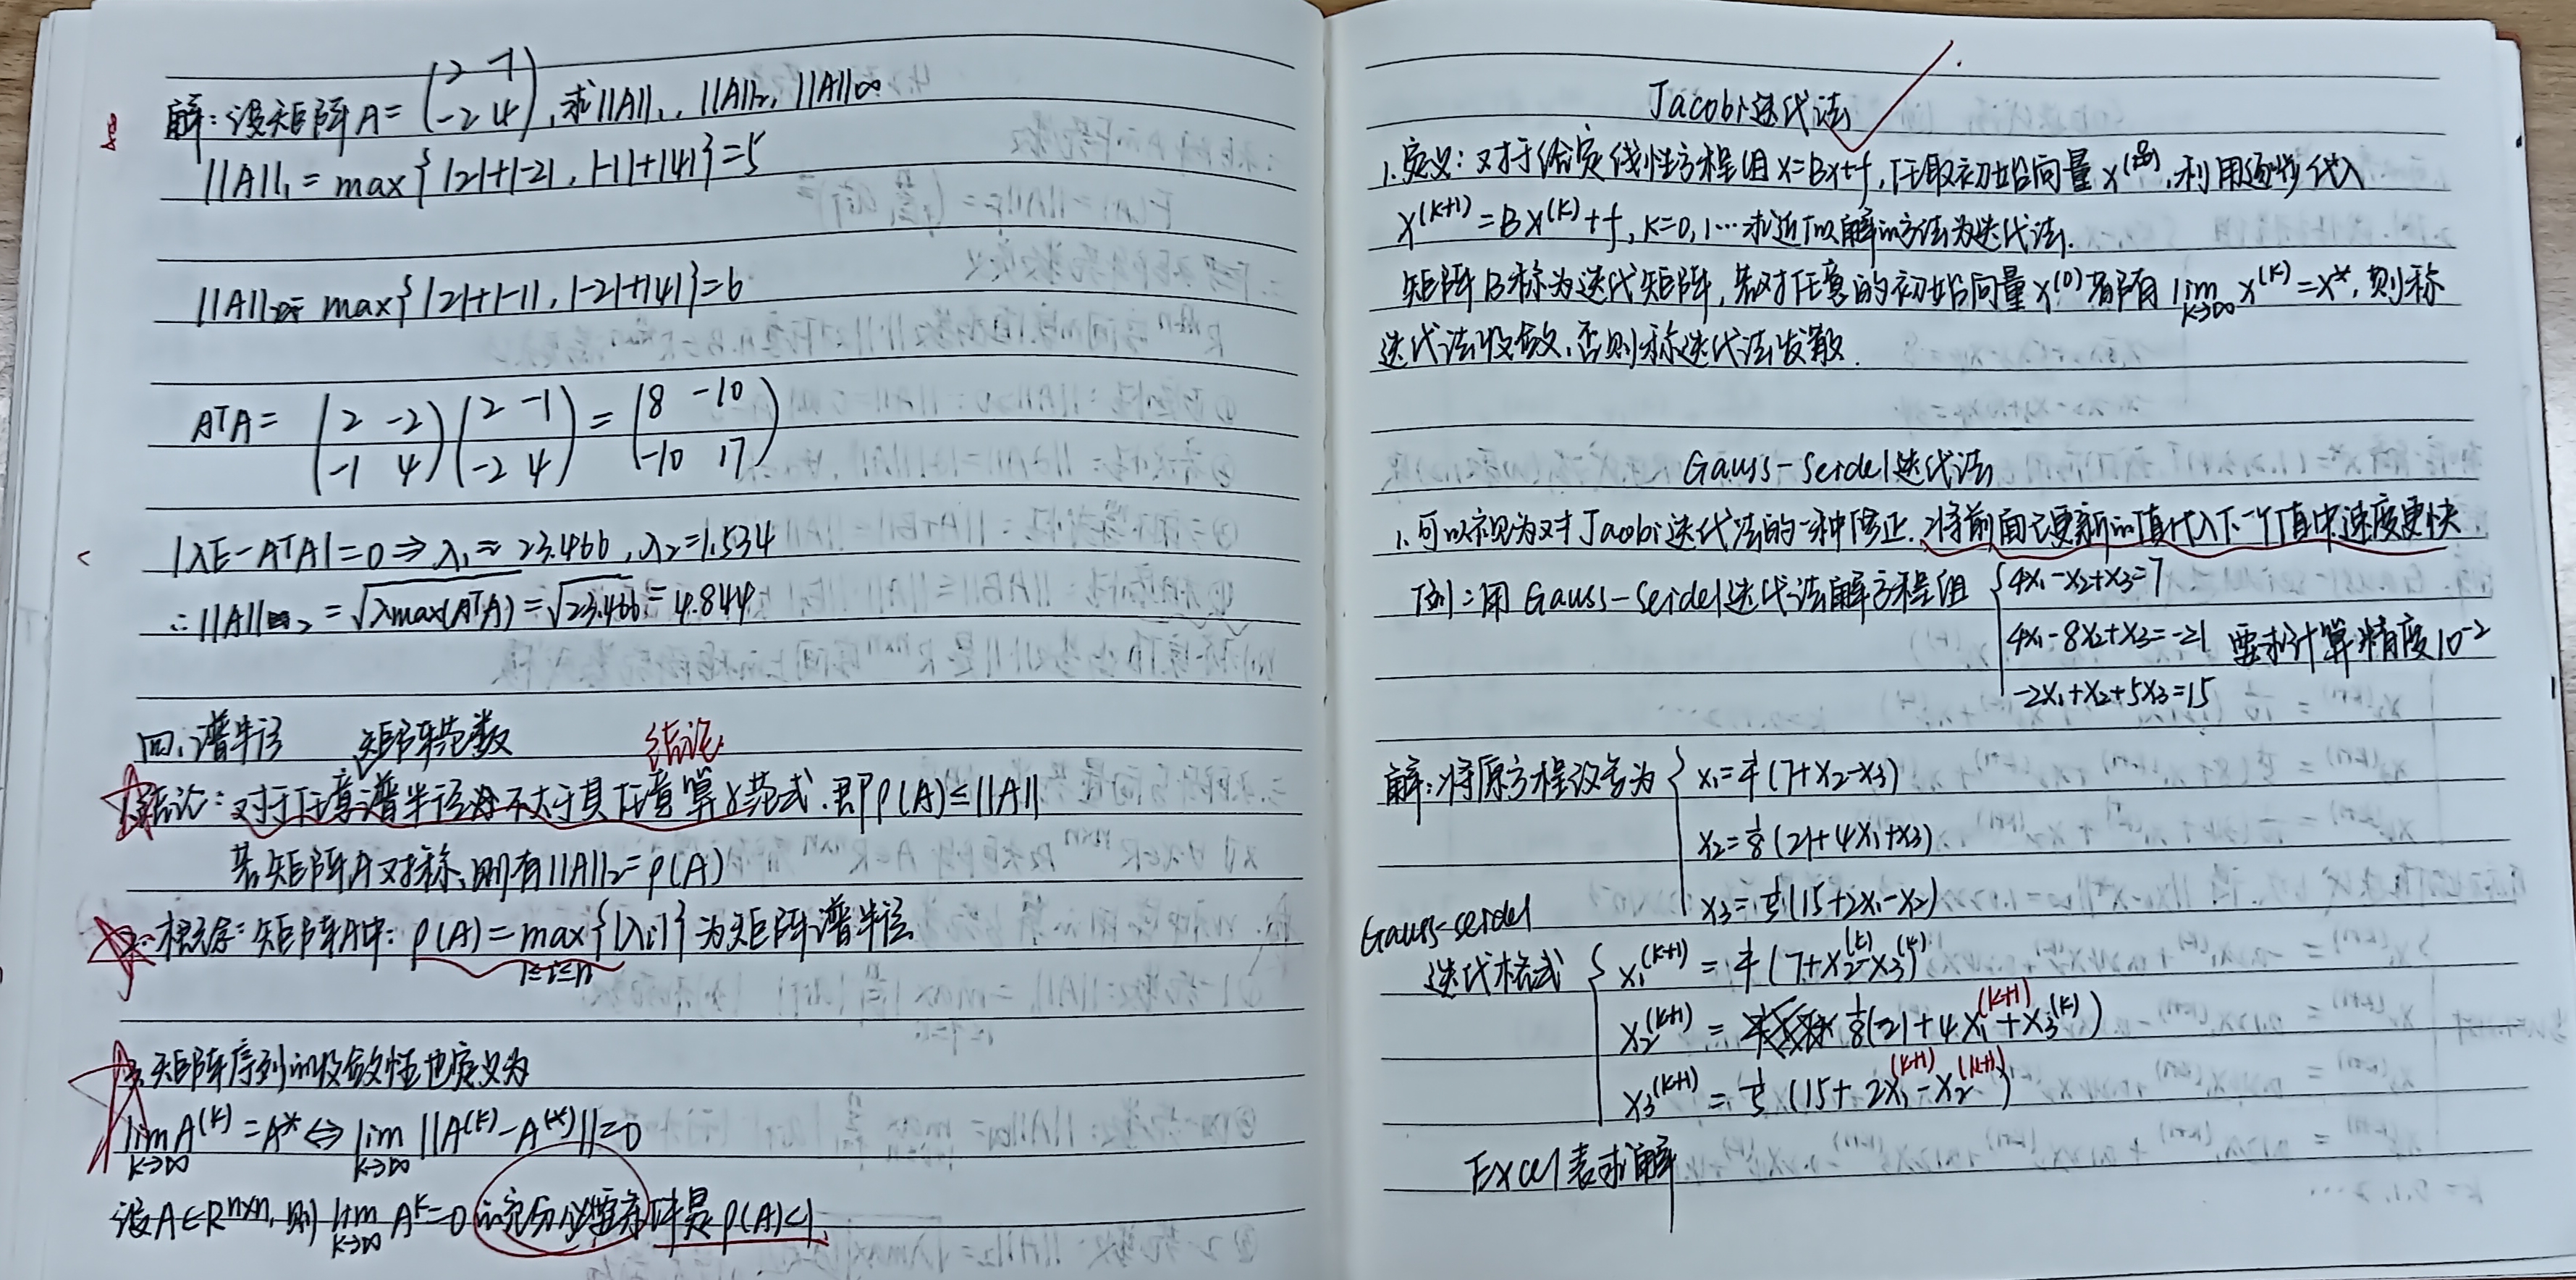 解：设矩阵A=(2 -1
-2 4),求||A||₁,||A||₂,||A||∞
||A||₁=max{|2|+|-2|,|-1|+|4|}=5
||A||∞=max{|2|+|-1|,|-2|+|4|}=6
AᵀA=(2 -2
-1 4)(2 -1
-2 4)=(8 -10
-10 17)
|λE-AᵀA|=0⇒λ₁≈23.466,λ₂=1.534
∴||A||₂=√λmax(AᵀA)=√23.466=4.844
四、谱半径 矩阵范数 结论
1.结论：对于任意谱半径不大于其任意算子范式.即ρ(A)≤||A||
若矩阵A对称,则有||A||₂=ρ(A)
2.概念：矩阵A中：ρ(A)=max{|λi|}为矩阵谱半径
1≤i≤n
3.矩阵序列的收敛性也定义为
lim A^(k)=A*⇔lim ||A^(k)-A^(*)||=0
k→∞ k→∞
设A∈R^n×n,则lim A^k=0的充分必要条件是ρ(A)<1.
k→∞
Jacobi迭代法
1.定义：对于给定线性方程组x=Bx+f,任取初始向量x^(0),利用逐步代入
x^(k+1)=Bx^(k)+f,k=0,1…求近似解的方法为迭代法.
矩阵B称为迭代矩阵,若对任意的初始向量x^(0)都有lim x^(k)=x*,则称
k→∞
迭代法收敛,否则称迭代法发散.
Gauss-Seidel迭代法
1.可以视为对Jacobi迭代法的一种修正.将前面已更新的值代入下一个值中,速度更快
例：用Gauss-Seidel迭代法解方程组{4x₁-x₂+x₃=7
4x₁-8x₂+x₃=-21 要求计算精度10⁻²
-2x₁+x₂+5x₃=15
解：将原方程改写为{x₁=¼(7+x₂-x₃)
x₂=⅛(21+4x₁+x₃)
x₃=⅕(15+2x₁-x₂)
Gauss-seidel
迭代格式{x₁^(k+1)=¼(7+x₂^(k)-x₃^(k))
x₂^(k+1)=⅛(21+4x₁^(k+1)+x₃^(k))
x₃^(k+1)=⅕(15+2x₁^(k+1)-x₂^(k+1))
Excel表求解